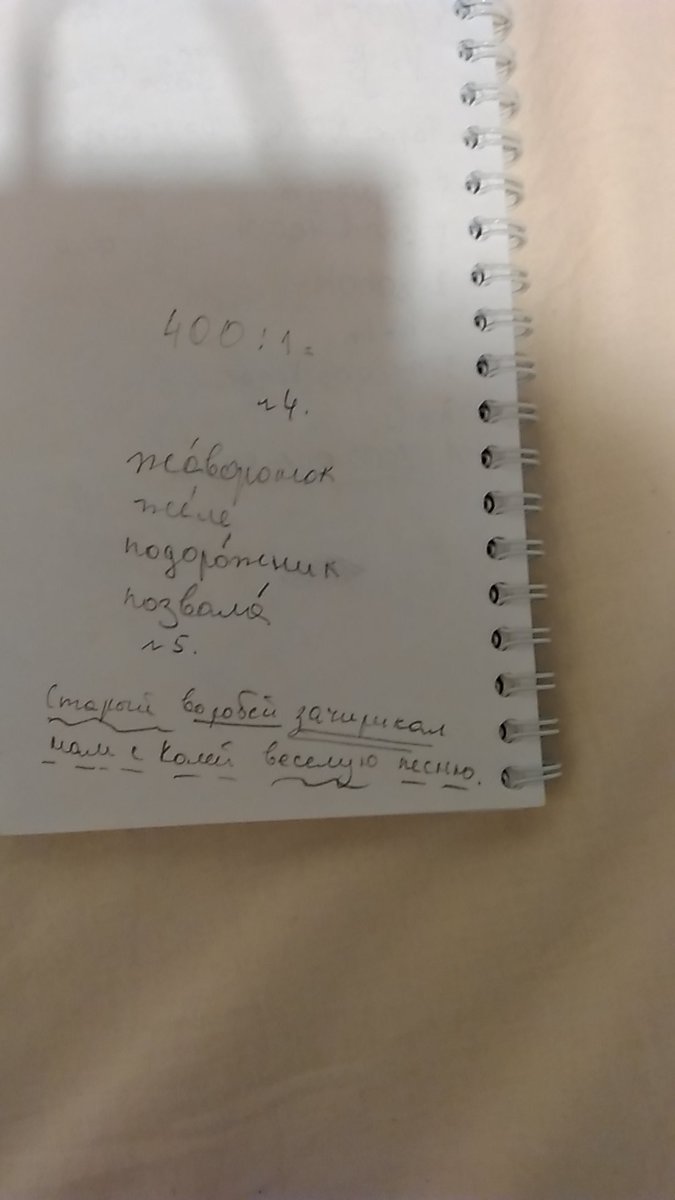 400:1=
~4.
жа́воронок
желе́
подоро́жник
позвала́
~5.
Старый воробей зачирикал
нам с Колей веселую песню.